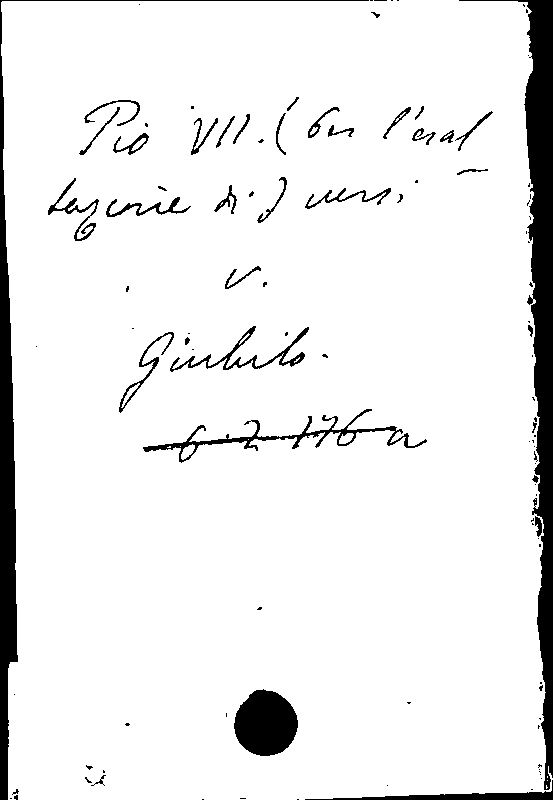 Pio VII. (Per l'esal
tazione di) versi
v.
Giubilo.
6. Z. 176 a